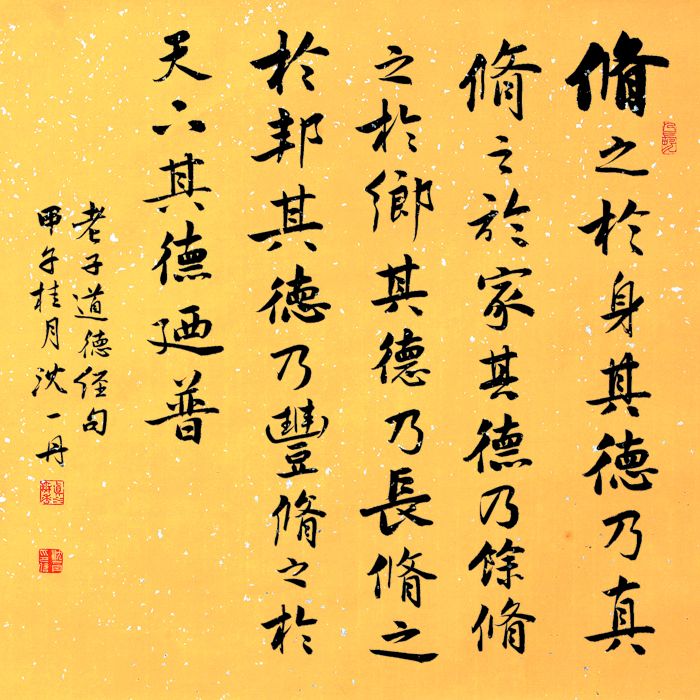 脩之於身其德乃真
脩之於家其德乃餘脩
之於鄉其德乃長脩之
於邦其德乃豐脩之於
天下其德廼普
老子道德经句
甲午桂月沈一丹